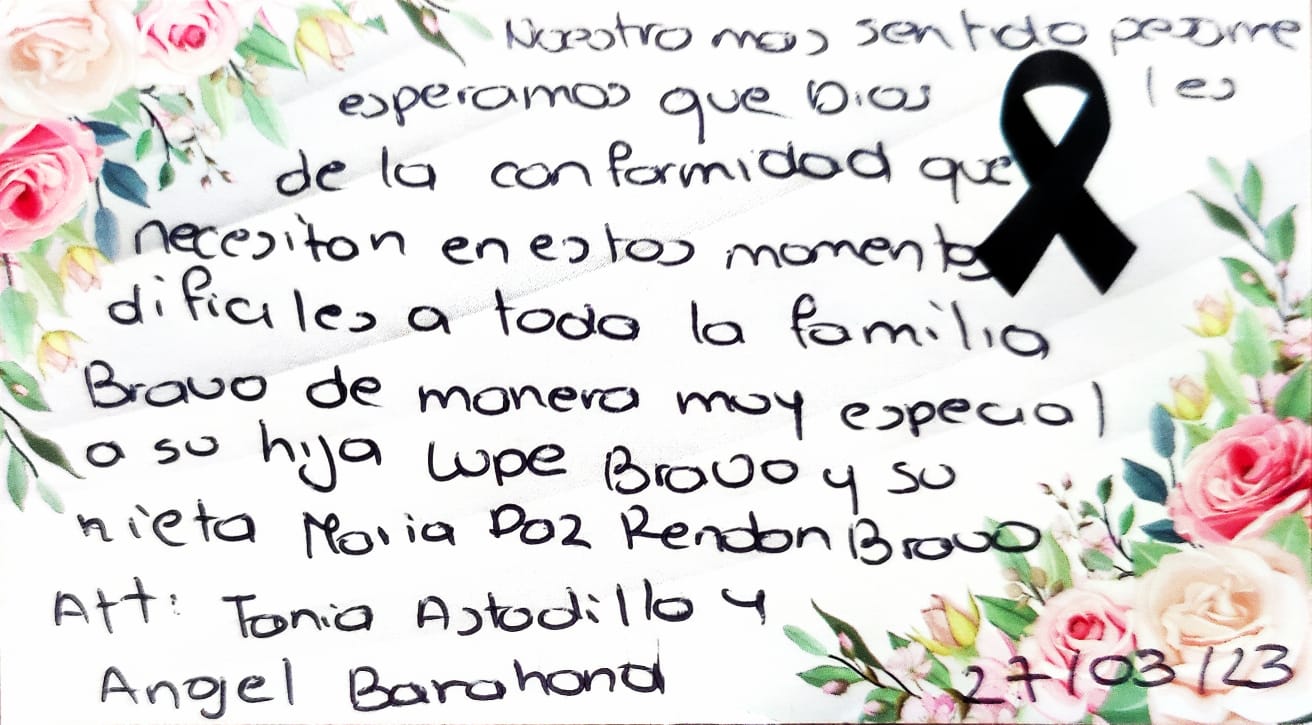 Nuestro mas sentido pesame
esperamos que Dios les
de la conformidad que
necesitan en estos momentos
dificiles a toda la familia
Bravo de manera muy especial
a su hija Lupe Bravo y su
nieta Maria Paz Rendon Bravo
Att: Tania Astudillo y
Angel Barahona
27/03/23